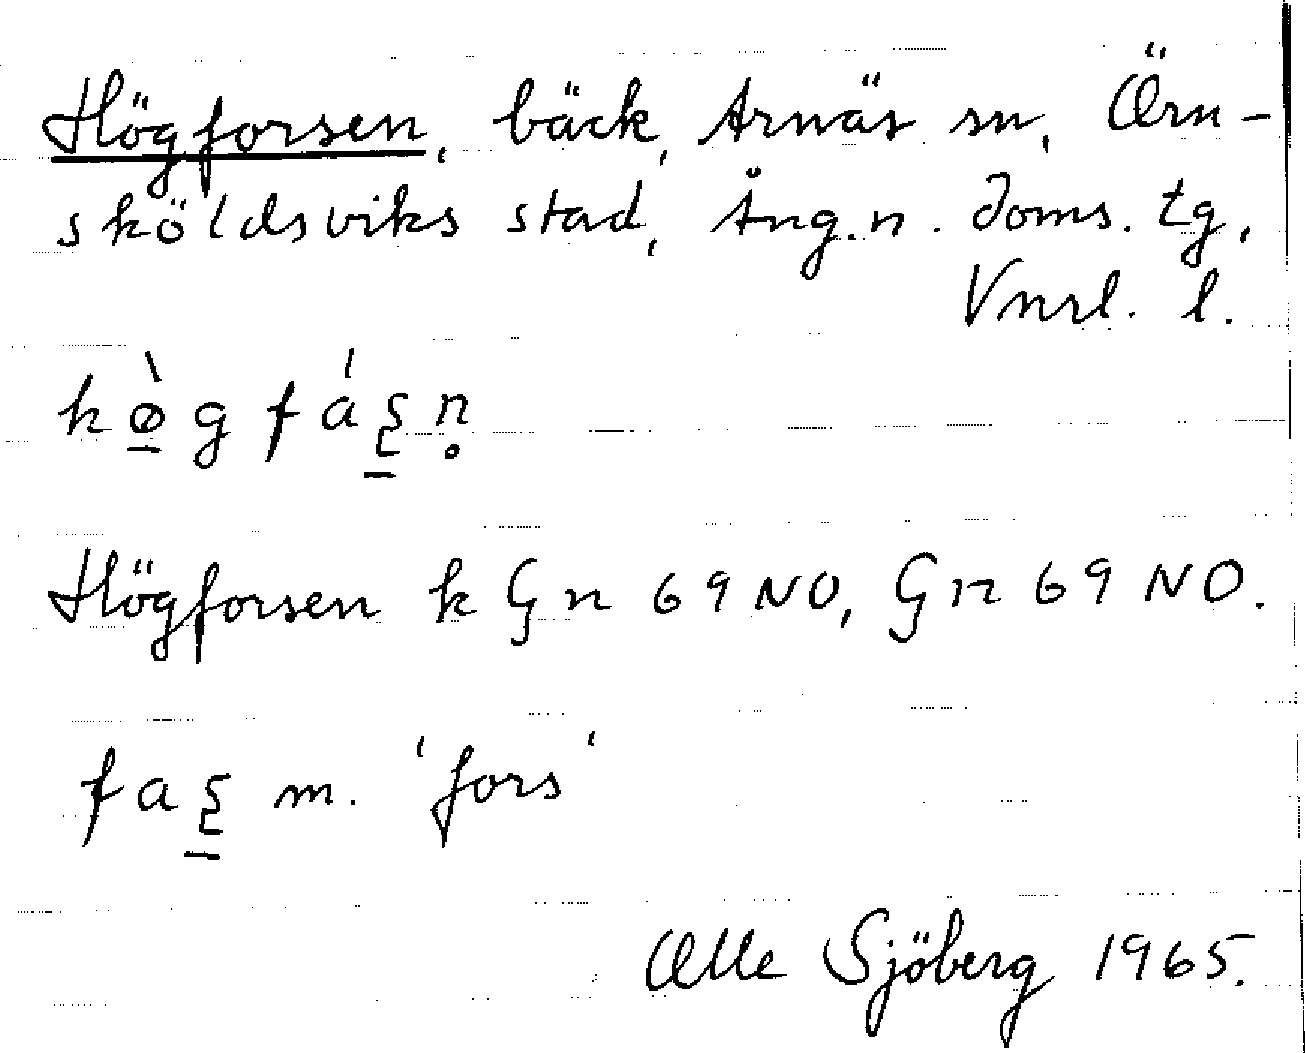 Högforsen, bäck, Arnäs sn, Örn-
sköldsviks stad, Ång. n. doms. tg,
Vnrl. l.
hø̱̀g fáʂ̱n̥
Högforsen k Gn 69 NO, Gn 69 NO.
faʂ̱ m. 'fors'
Olle Sjöberg 1965.